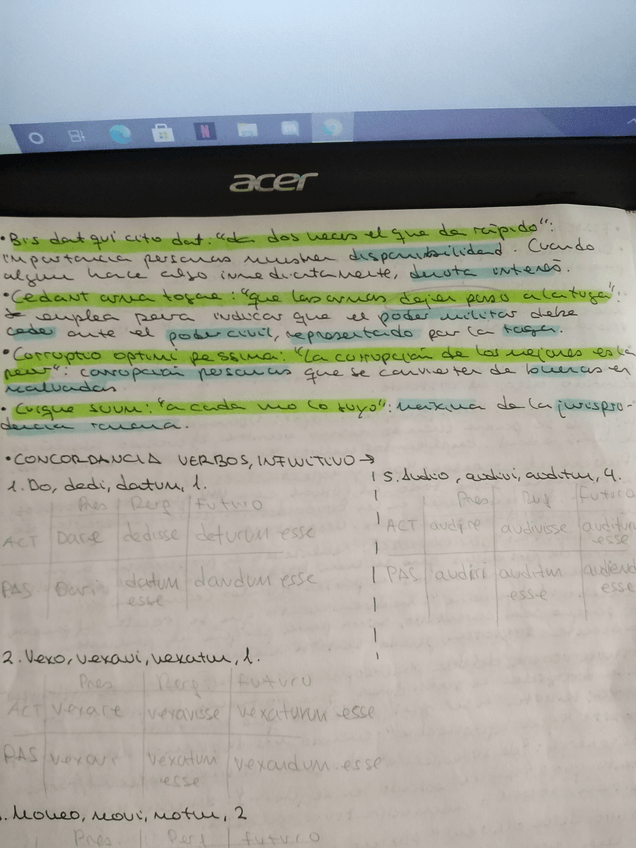 acer
• Bis dat qui cito dat: "da dos veces el que da rápido":
importancia personas muestren disponibilidad. Cuando
alguien hace algo inmediatamente, denota interés.
• Cedant arma togae: "que las armas dejen paso a la toga":
se emplea para indicar que el poder militar debe
ceder ante el poder civil, representado por la toga.
• Corruptio optimi pessima: "la corrupción de los mejores es la
peor": corrupción personas que se convierten de buenas en
malvadas
• Cuique suum: "a cada uno lo suyo": máxima de la jurispru-
dencia romana.
• CONCORDANCIA VERBOS, INFINITIVO →
1. Do, dedi, datum, 1.
Pres Perf Futuro
ACT Dare dedisse daturum esse
PAS Dari datum dandum esse
esse
5. Audio, audivi, auditum, 4.
Pres Perf Futuro
ACT audire audivisse auditurum
esse
PAS audiri auditum audiend
esse esse
2. Vexo, vexavi, vexatum, 1.
Pres Perf Futuro
ACT vexare vexavisse vexaturum esse
PAS vexari vexatum vexandum esse
esse
. Moveo, movi, motum, 2
Pres Perf Futuro